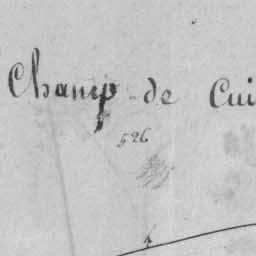 Champ de Cui
526